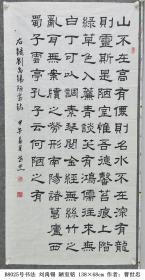 山不在高有仙則名水不在深有龍
則靈斯是陋室惟吾德馨苔痕上階
綠草色入簾青談笑有鴻儒往來無
白丁可以調素琴閱金經無絲竹之
亂耳無案牘之勞形南陽諸葛廬西
蜀子雲亭孔子云何陋之有
右錄劉禹錫陋室銘
甲午
B8025号书法 刘禹锡 陋室铭 138×68cm 作者：曹世忠